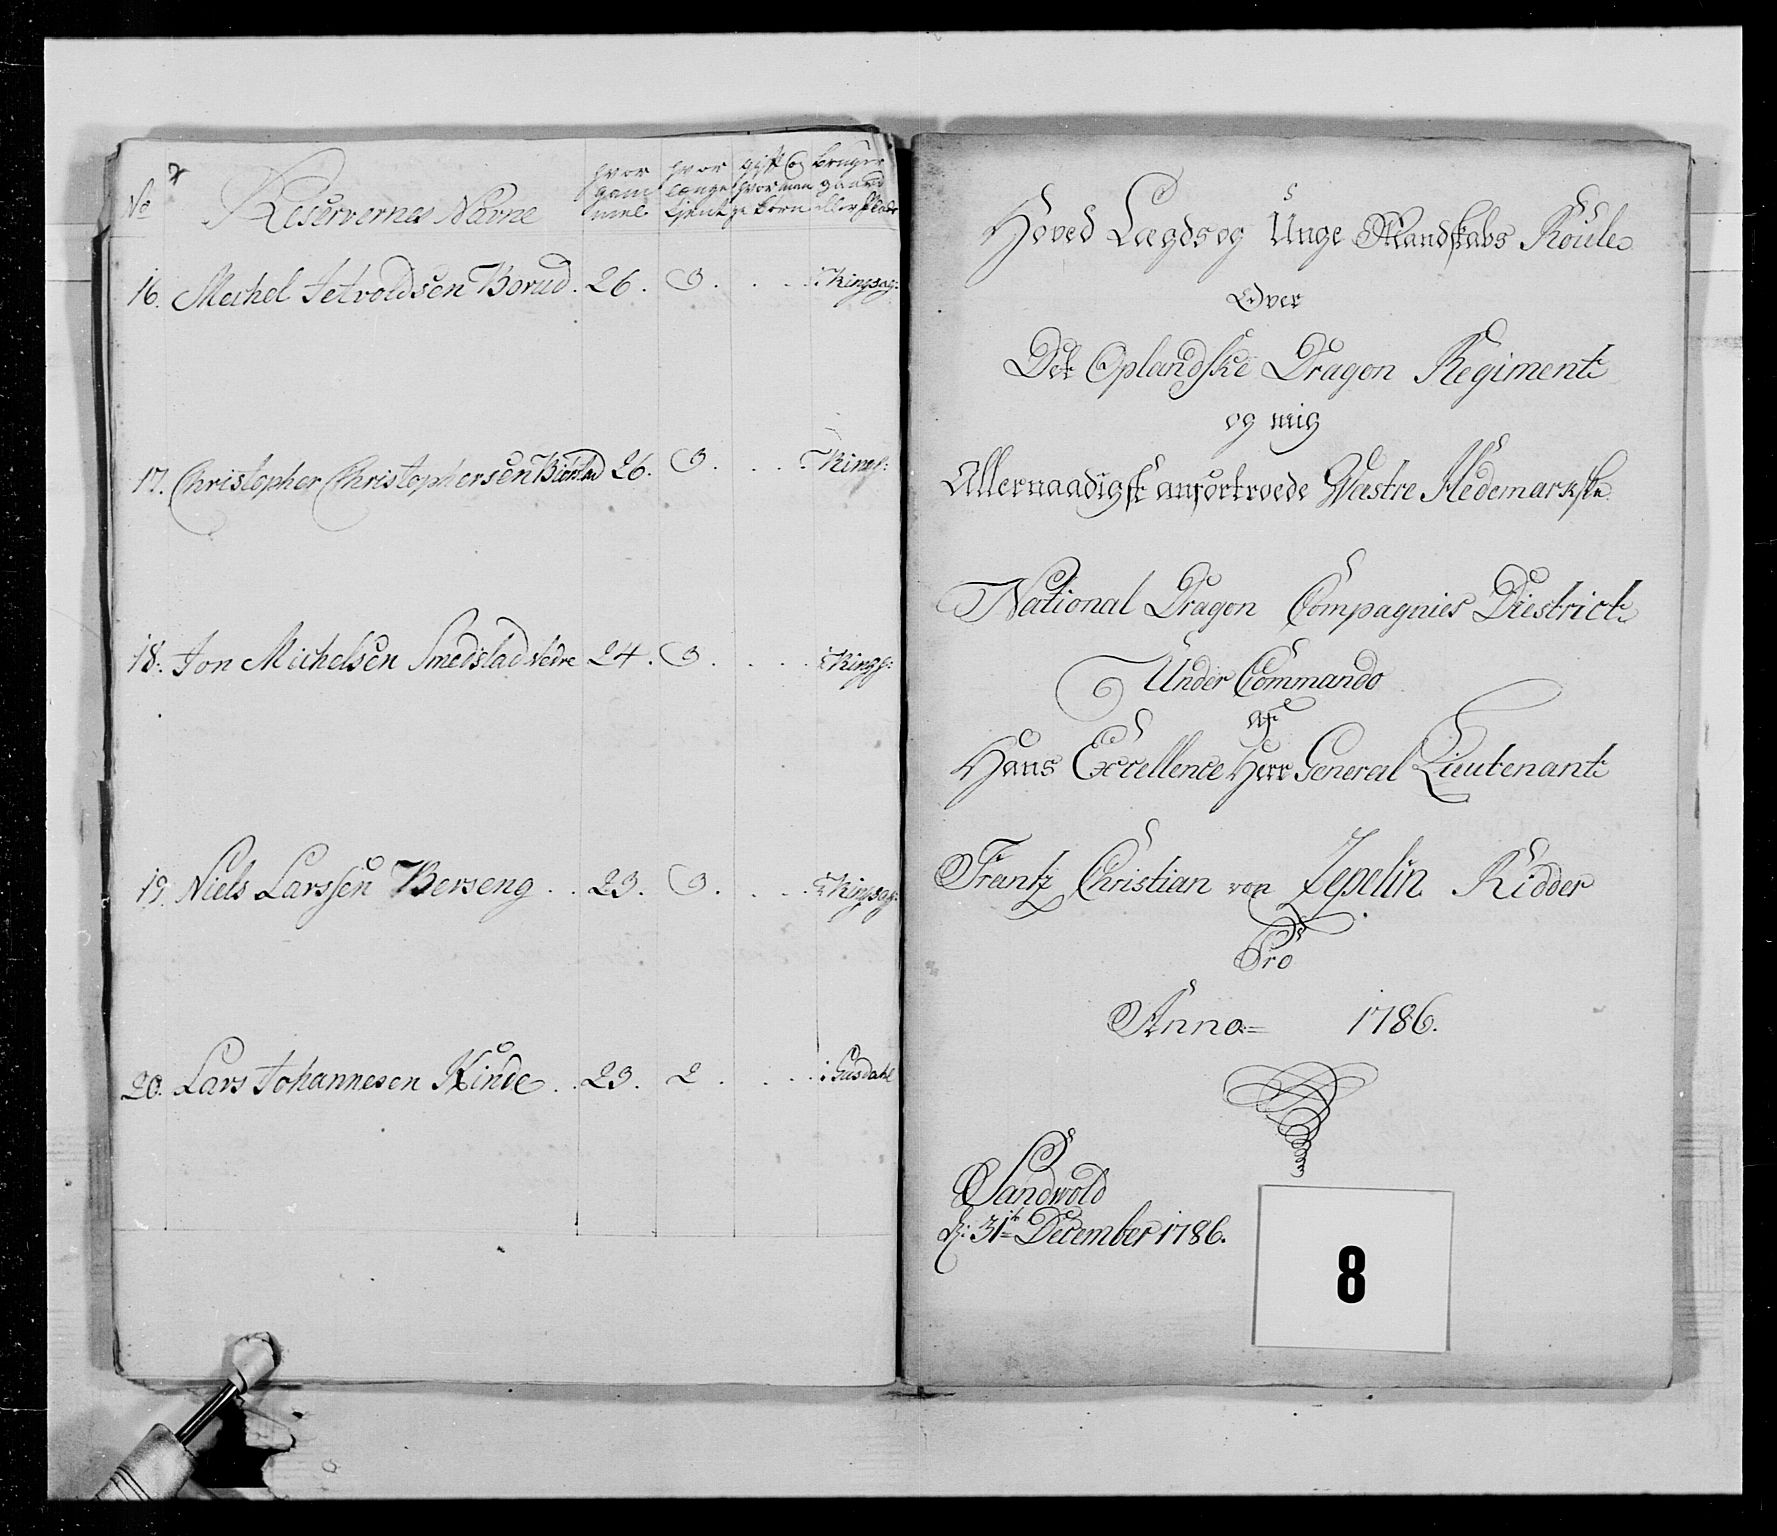 No Reservernes Navne hvor gammel hvor længe tjent gift og hvor mange børn bruger gaard eller Plads
16. Mechel Setvoldsen Borud. 26. 3. . . i Ringsag:
17. Christopher Christophersen Bierstad 26. 3. . . i Rings:
18. Jon Michelsen Smedstad Nedre 24. 3. . . i Rings:
19. Niels Larssen Berseng . . 23. 3. . . i Ringsag:
20. Lars Johannesen Kinde . . 23. 2 . . . i Gusdahl
Hoved Lægds og Unge Mandskabs Roule
Over
Det Oplandske Dragon Regiment
og mig
Allernaadigst anfortroede Westre Hedemarkske
National Dragon Compagnies Diestrict
Under Commando
af
Hans Excellence Herr General Lieutenant
Frantz Christian von Zepelin Ridder
Pro
Anno= 1786.
Sandwold
d: 31te December 1786.
8